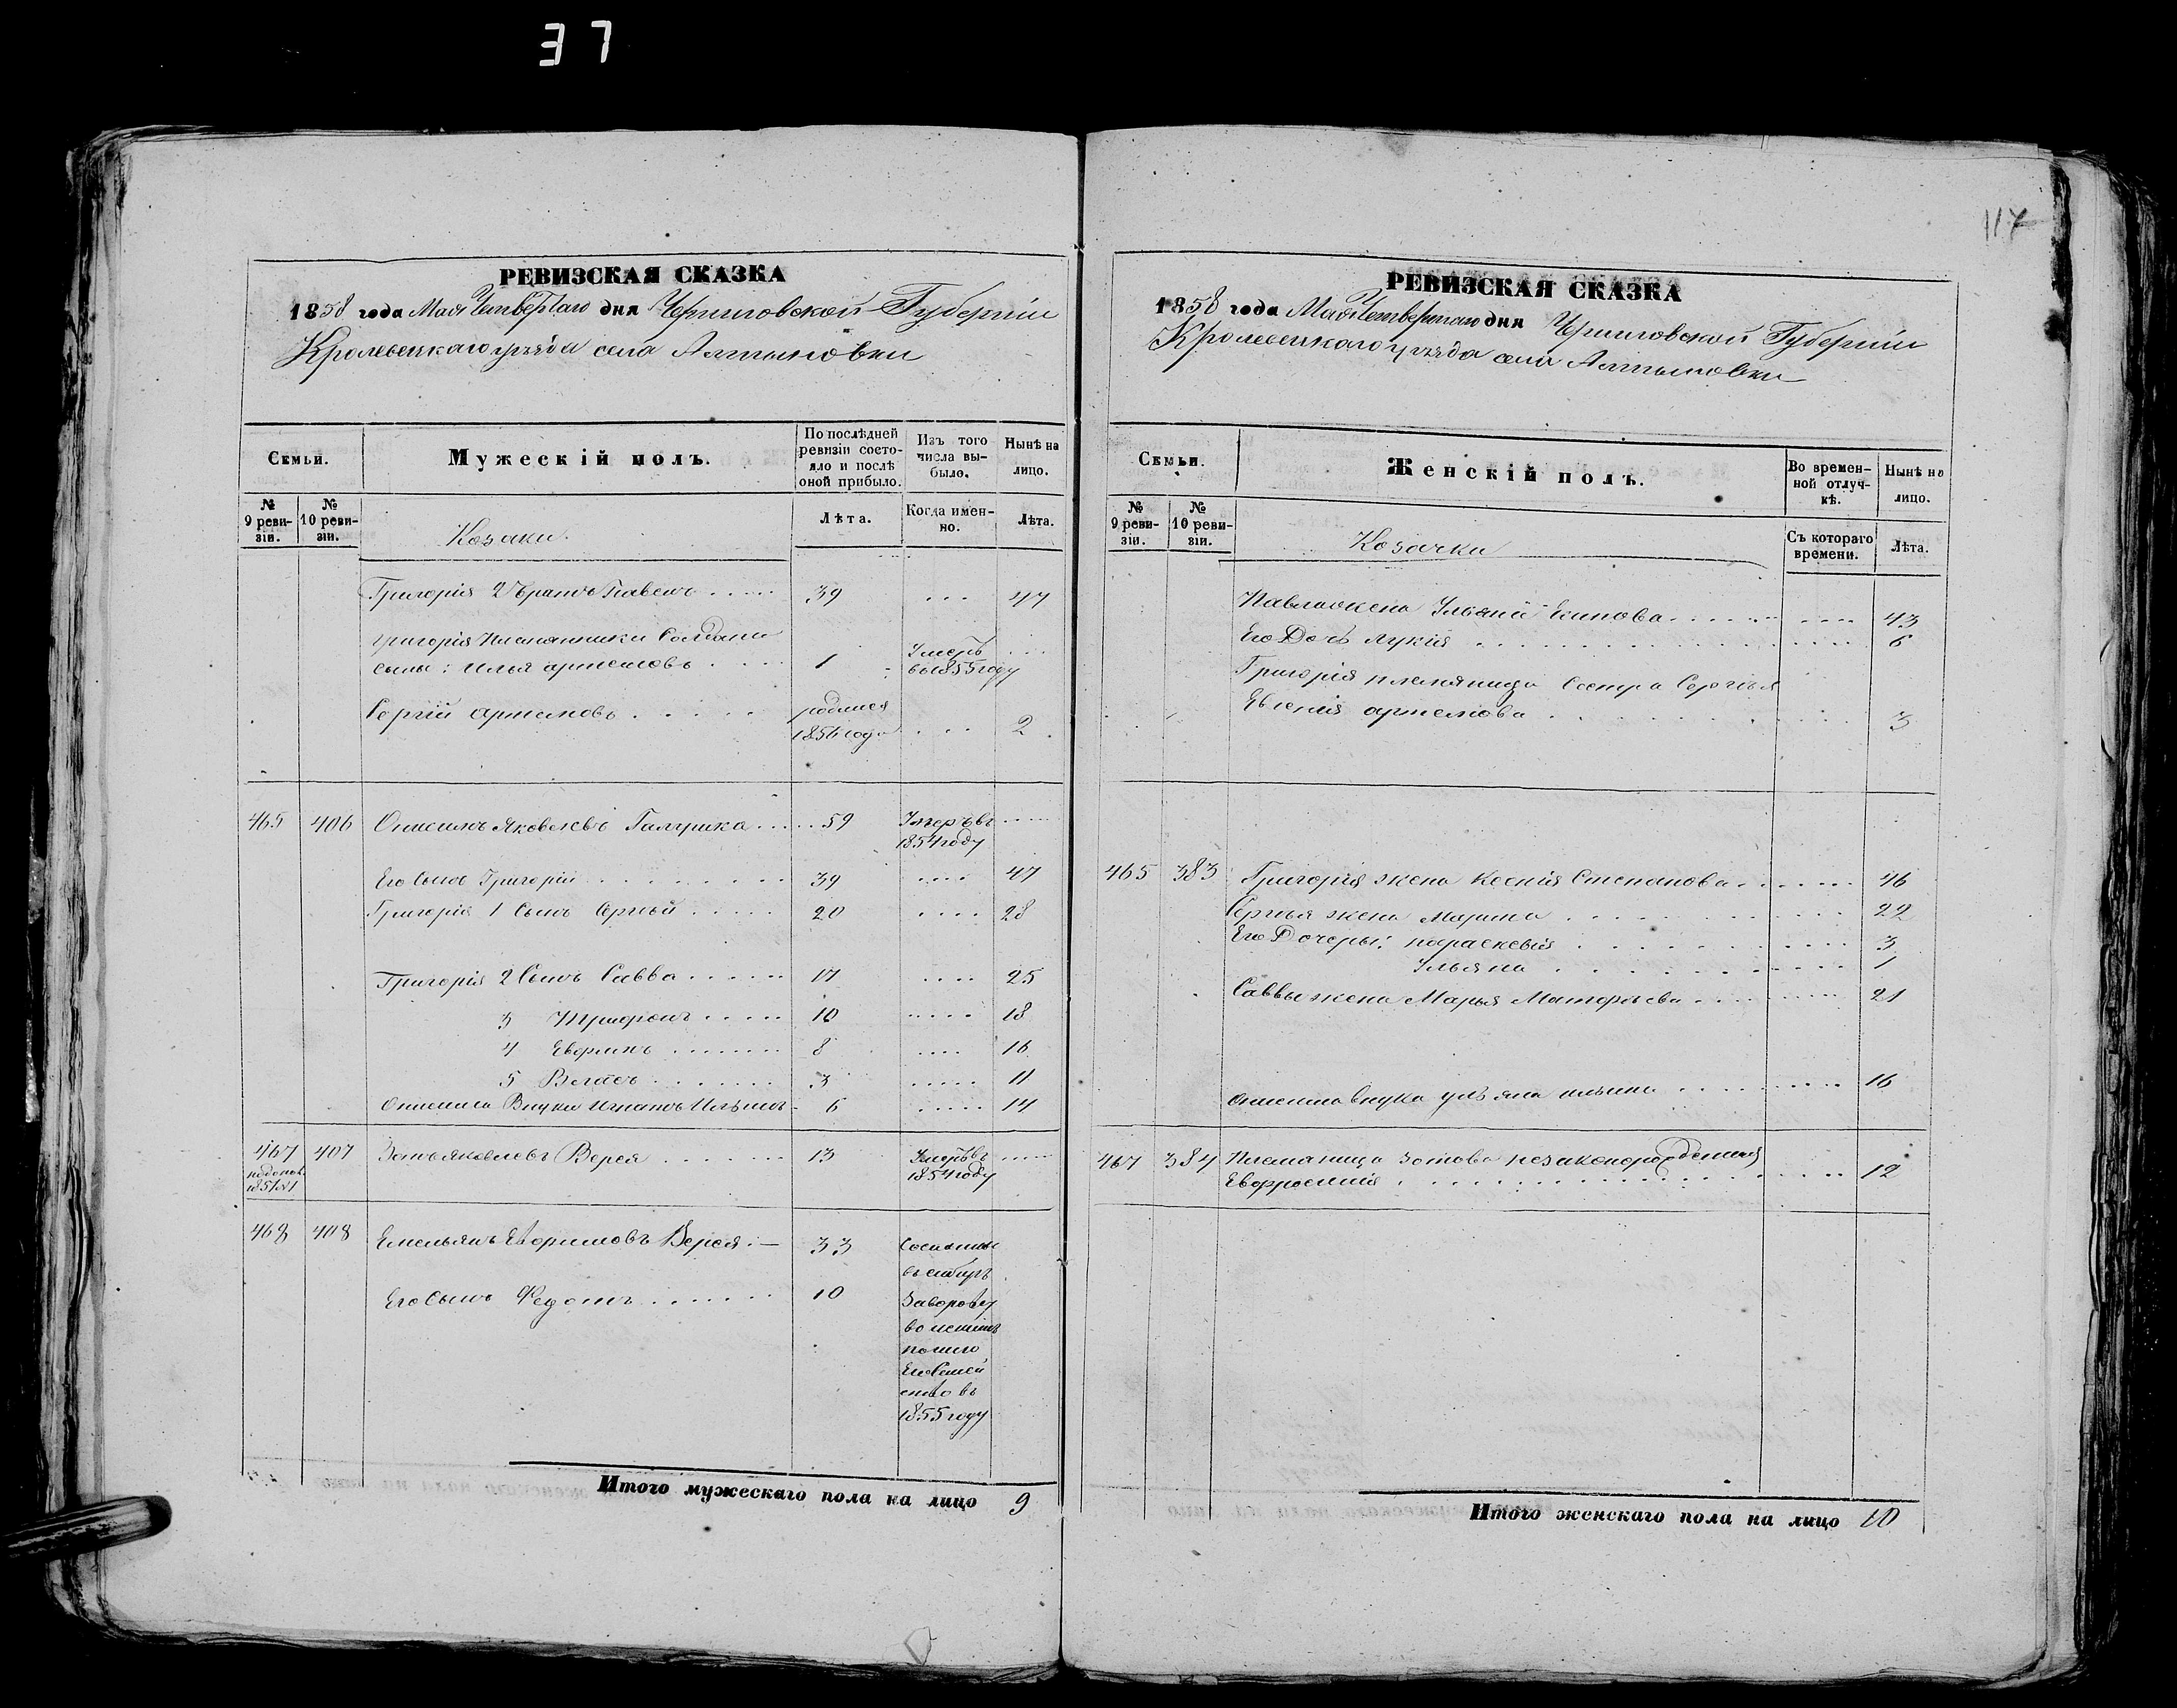 37
117
РЕВИЗСКАЯ СКАЗКА
1858 года Мая Четвертаго дня Черниговской Губерніи
Кролевецкаго уезда села Алтыновки
Семьи.
Мужескій полъ.
По послѣдней ревизіи состояло и послѣ оной прибыло.
Изъ того числа выбыло.
Нынѣ на лицо.
№ 9 ревизіи.
№ 10 ревизіи.
Козаки.
Лѣта.
Когда именно.
Лѣта.
Григорія 2 братъ Павелъ 39 47
Григорія Племянники Солдатские
сыны: Илья Артемовъ 1 Умеръ въ 1855 году
Сергій Артемовъ родился 1856 года 2
465 406 Онисимъ Яковлевъ Галушка 59 Умеръ въ 1854 году
Его Сынъ Григорій 39 47
Григорія 1 Сынъ Сергѣй 20 28
Григорія 2 Сынъ Савва 17 25
3 Трифонъ 10 18
4 Евфимъ 8 16
5 3 11
Онисима Внукъ Игнатъ Ильинъ 6 14
467 407 Зотъ Яковлевъ Верея 13 Умеръ въ 1854 году
1851 №1
468 408 Емельянъ Евфимовъ Верея 33 Сосланы
въ сибирь
Его Сынъ Федотъ 10 За воровство
1855 году
Итого мужескаго пола на лицо 9
РЕВИЗСКАЯ СКАЗКА
1858 года Мая Четвертаго дня Черниговской Губерніи
Кролевецкаго уезда села Алтыновки
Семьи.
Женскій полъ.
Во временной отлучкѣ.
Нынѣ на лицо.
№ 9 ревизіи.
№ 10 ревизіи.
Козачки
Съ котораго времени.
Лѣта.
Павла жена Ульяна Екимова 43
Его Дочь Лукія 6
Григорія племянница Сестра Сергѣя
Евгенія Артемова 3
465 383 Григорія жена Ксенія Степанова 46
Сергѣя жена Марина 22
Его Дочеры: Параскевія 3
Ульяна 1
Саввы жена Марья Матфѣева 21
Онисима внука Ульяна Ильина 16
467 384 Племяница Зотова незаконорожденная
Евфросинія 12
Итого женскаго пола на лицо 10